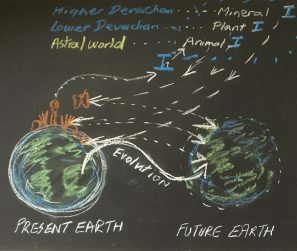 Higher Devachan ..... Mineral I
Lower Devachan ..... Plant I
Astral World ..... Animal I
I
Evolution
PRESENT EARTH
FUTURE EARTH